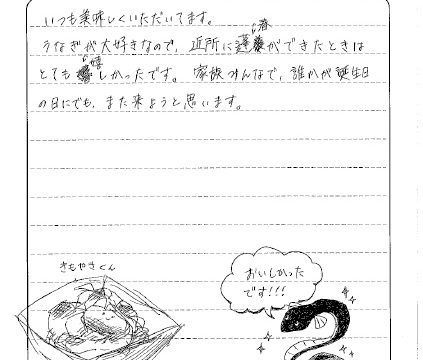 いつも美味しくいただいてます。
うなぎが大好きなので、近所に蓬莱ができたときは
とても嬉しかったです。家族みんなで、誰かが誕生日
の日にでも、また来ようと思います。
きもやきくん
おいしかった
です!!!